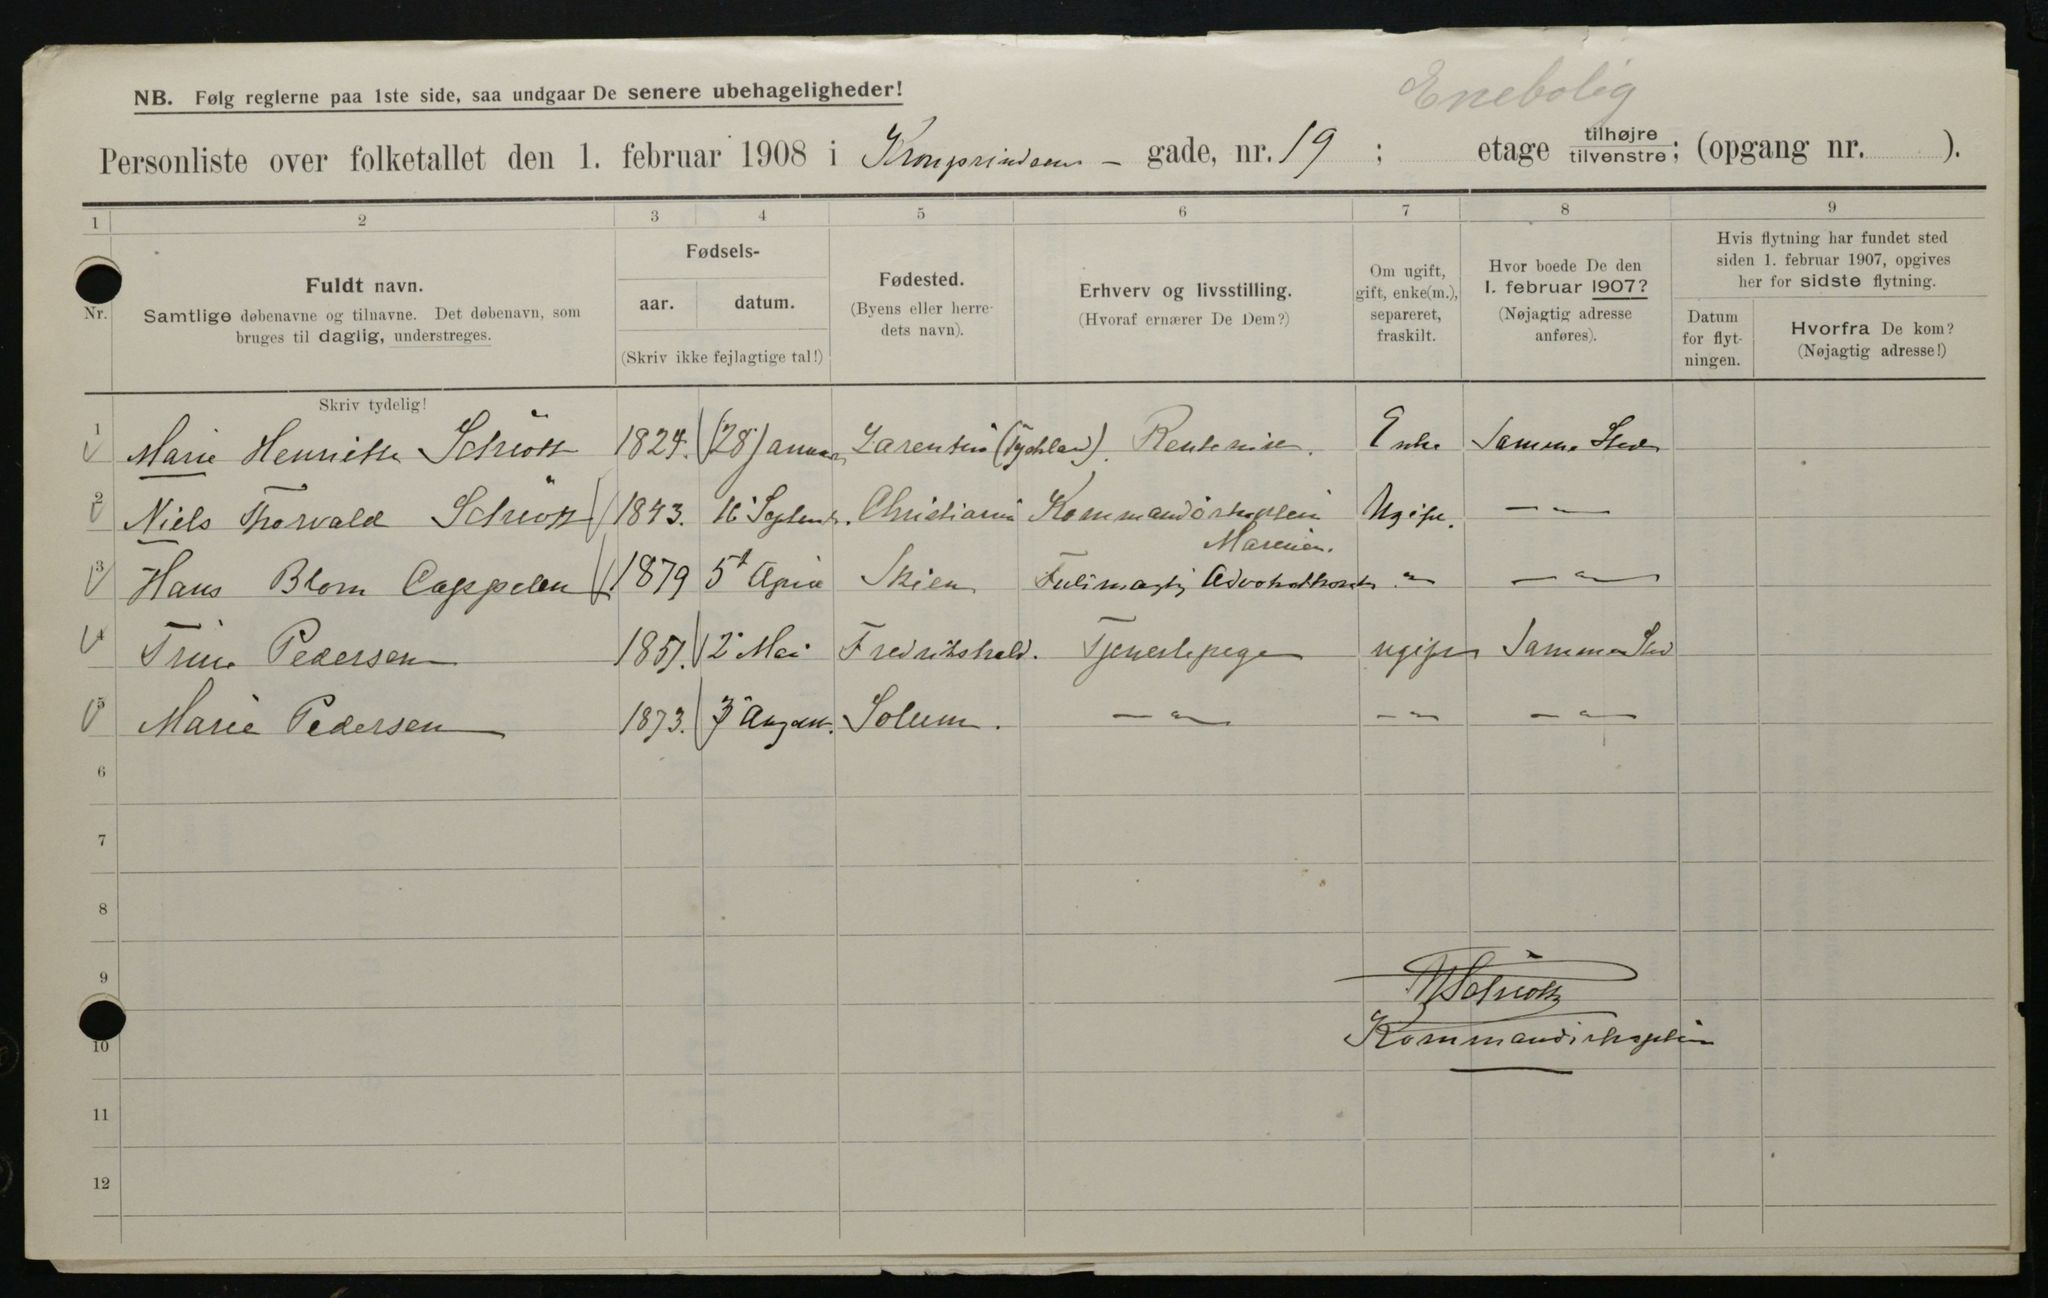 Enebolig
NB. Følg reglerne paa 1ste side, saa undgaar De senere ubehageligheder!
Personliste over folketallet den 1. februar 1908 i Kronprindsens – gade, nr. 19 ; etage tilhøjre tilvenstre; (opgang nr. ).
1 2 3 4 5 6 7 8 9
Nr.
Fuldt navn.
Samtlige døbenavne og tilnavne. Det døbenavn, som
bruges til daglig, understreges.
Skriv tydelig!
Fødsels-
aar. datum.
(Skriv ikke fejlagtige tal!)
Fødested.
(Byens eller herre-
dets navn).
Erhverv og livsstilling.
(Hvoraf ernærer De Dem?)
Om ugift,
gift, enke(m.),
separeret,
fraskilt.
Hvor boede De den
1. februar 1907?
(Nøjagtig adresse
anføres).
Hvis flytning har fundet sted
siden 1. februar 1907, opgives
her for sidste flytning.
Datum
for flyt-
ningen.
Hvorfra De kom?
(Nøjagtig adresse!)
1 Marie Henriette Schiött 1824. (28 Januar (Tydskland). Enke Samme Sted
2 Niels Thorvald Schiött 1843. 16 Septemb. Christiania Kommandörkaptein Ugift. – " –
Marinen.
3 Hans Blom Cappelen 1879 5t April Skien Fuldmægtig Advokatkont " – " –
4 Trine Pedersen 1851. 2 Mai Fredrikshald. Tjenestepige ugift Samme Sted
5 Marie Pedersen 1873. 7 August. Solum. – " – – " – – " –
6
7
8
9
10
11
12
N Schiött
Kommandörkaptein